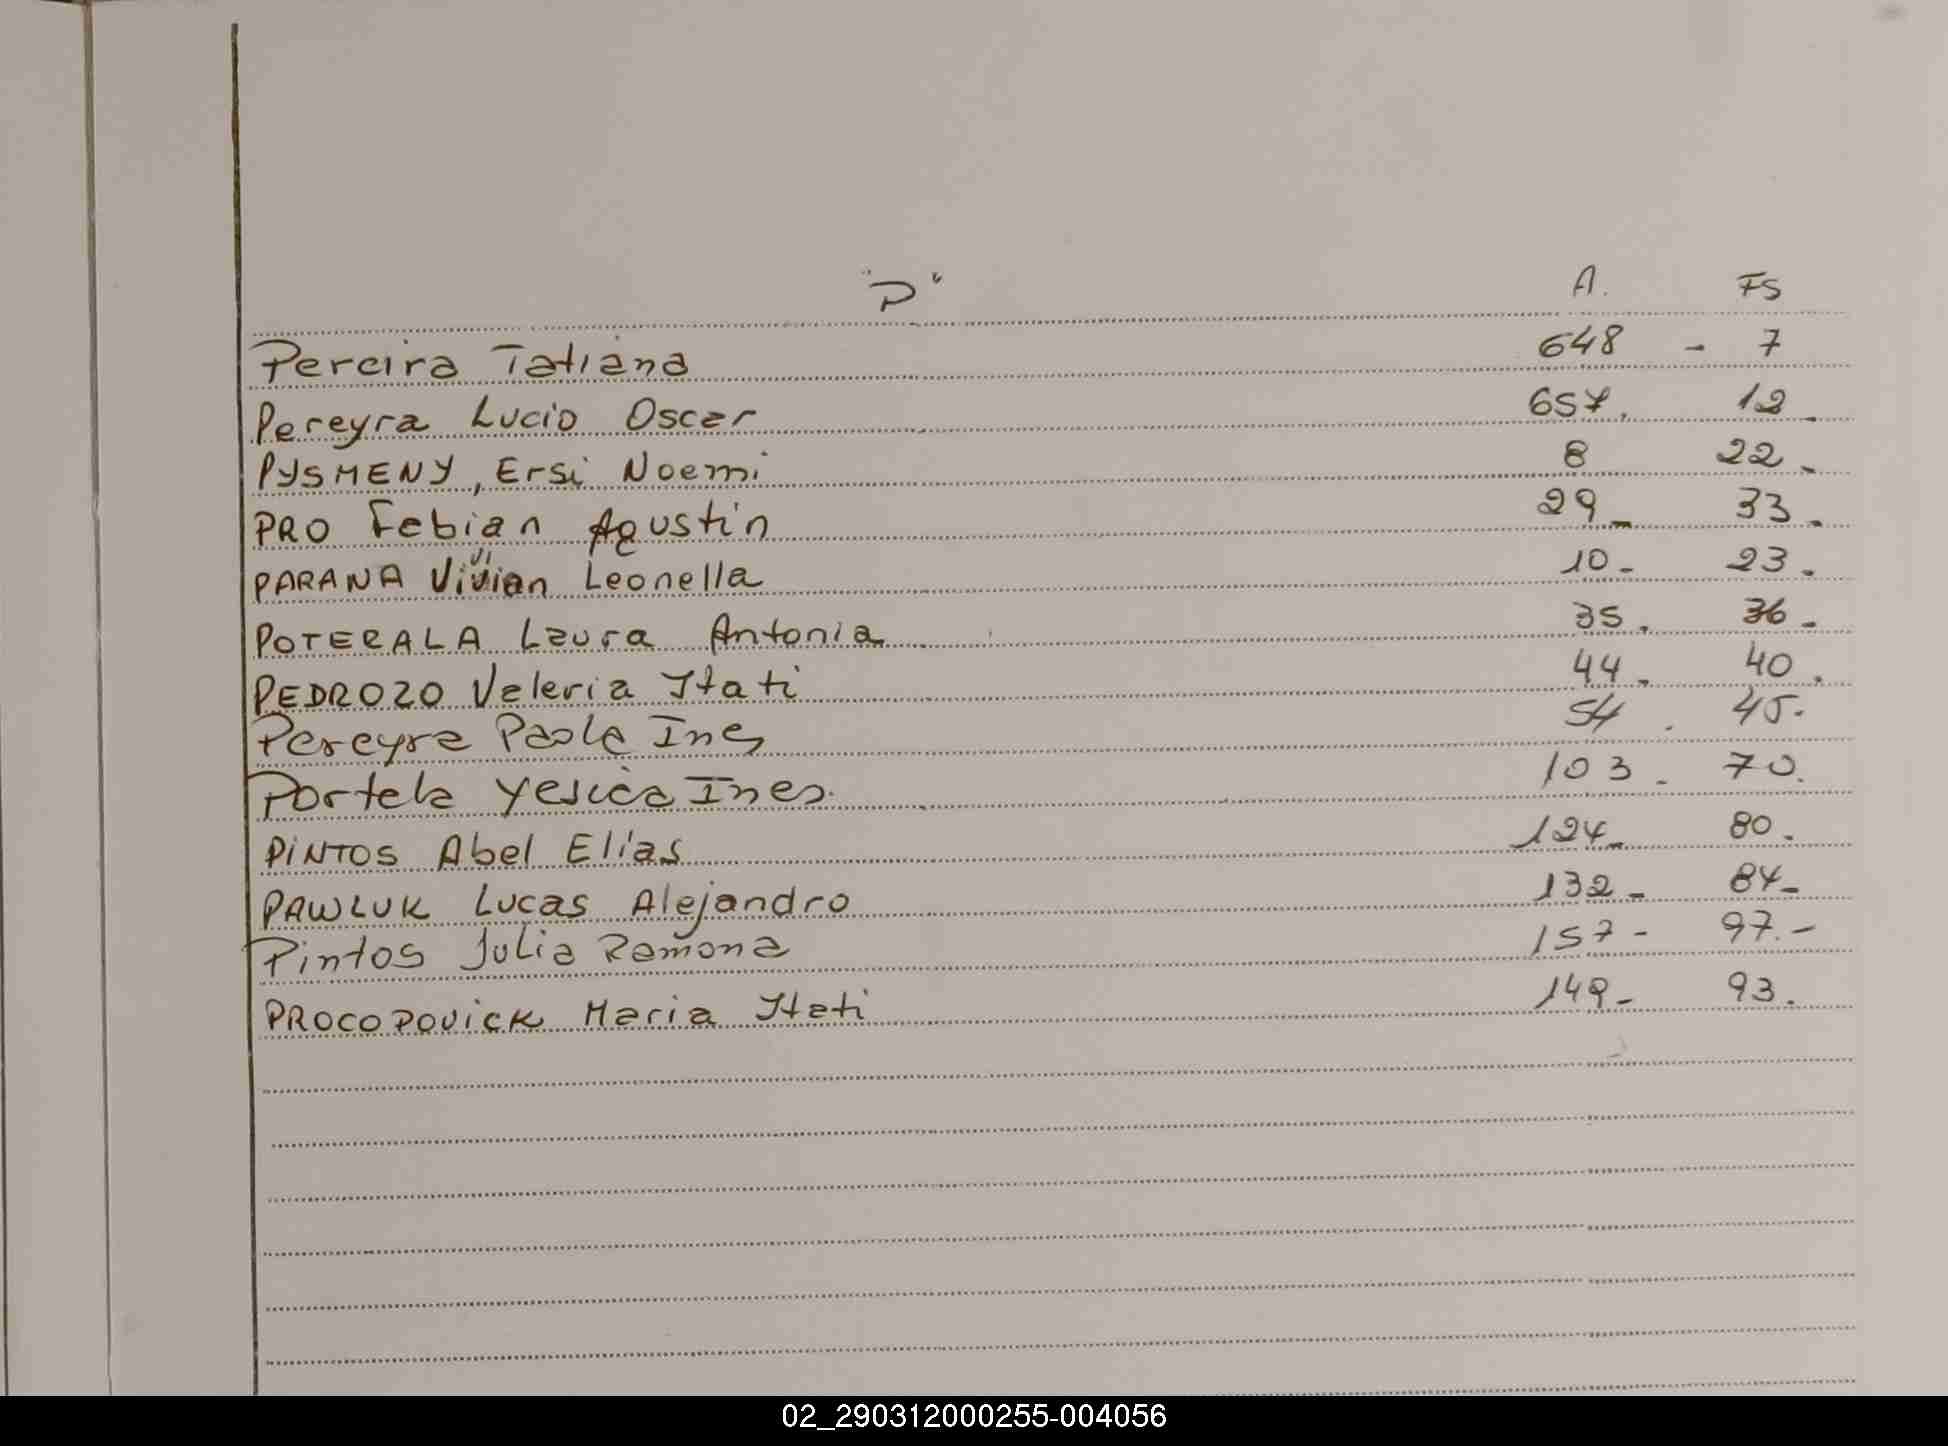 "P" A. FS
Pereira Tatiana 648 - 7
Pereyra Lucio Oscar 657. 12.
PYSMENY, Ersi Noemi 8 22.
PRO Fabian Agustin 29- 33.
PARANA Vivian Leonella 10- 23.
POTERALA Laura Antonia 35. 36.
PEDROZO Valeria Itati 44. 40.
Pereyra Paola Ines 54. 45.
Portela Yesica Ines. 103. 70.
PINTOS Abel Elías 124- 80.
PAWLUK Lucas Alejandro 132- 84-
Pintos Julia Ramona 157- 97.-
PROCOPOVICK Maria Itati 149- 93.
02_290312000255-004056